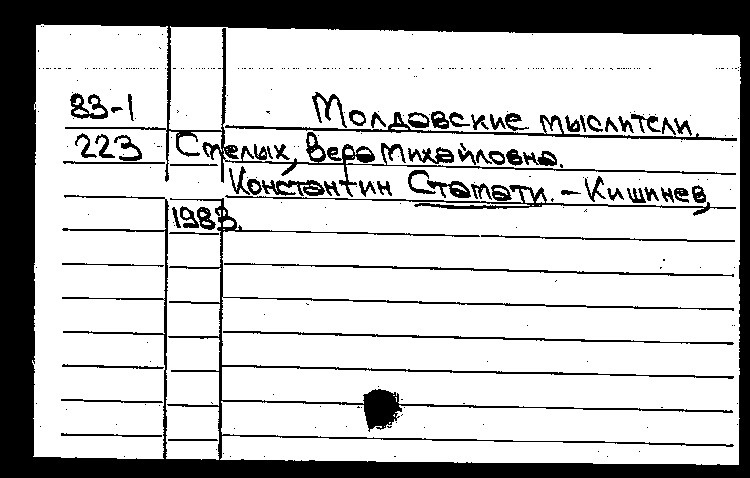 83-1 Молдавские мыслители.
223 Стелых, Вера Михайловна.
Константин Стамати. – Кишинев,
1983.